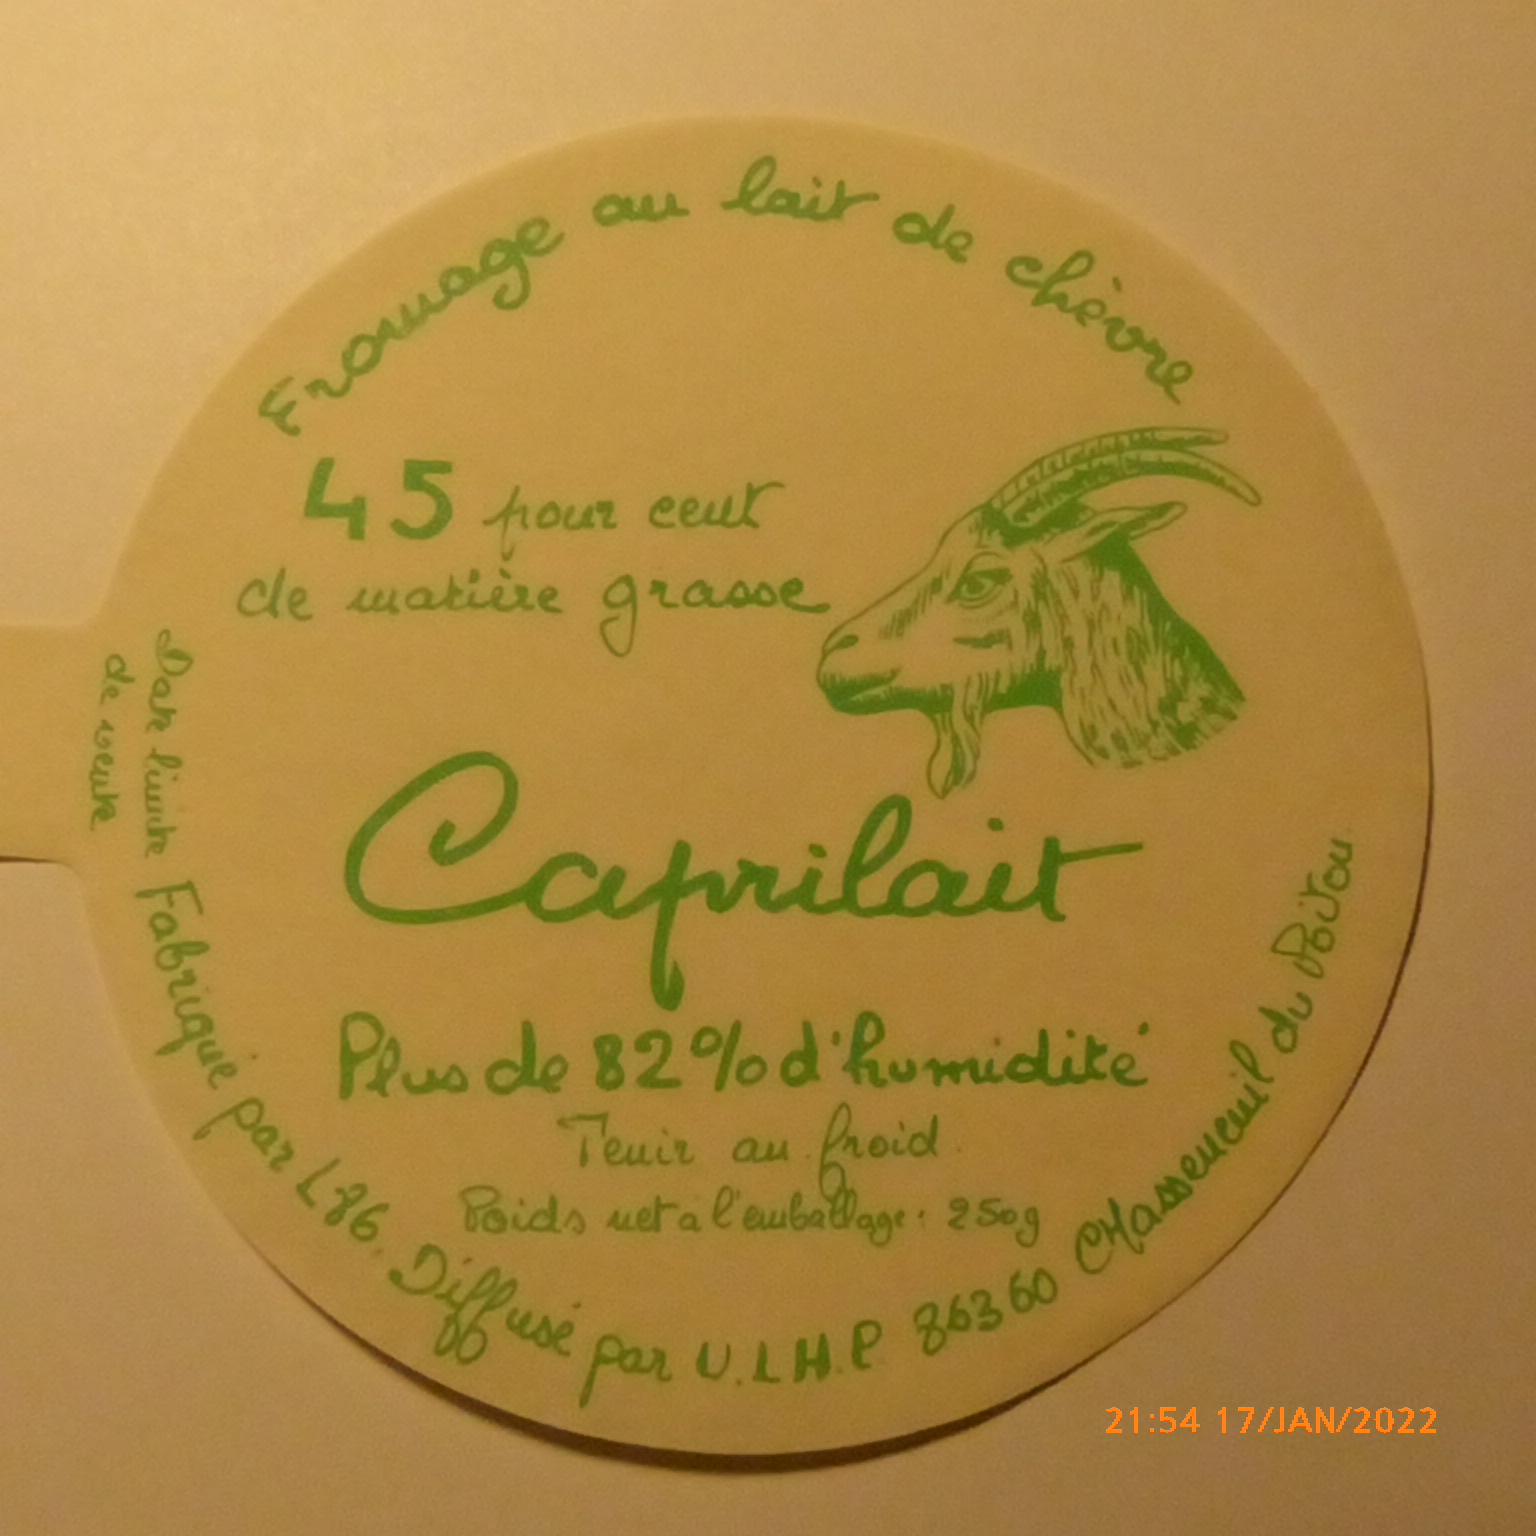 Fromage au lait de chèvre
45 pour cent
de matière grasse
Caprilait
Plus de 82% d'humidité
Tenir au froid.
Poids net à l'emballage: 250g
Date limite
de vente
Fabriqué par L86. Diffusé par U.L.H.P. 86360 CHasseneuil du Poitou.
21:54 17/JAN/2022